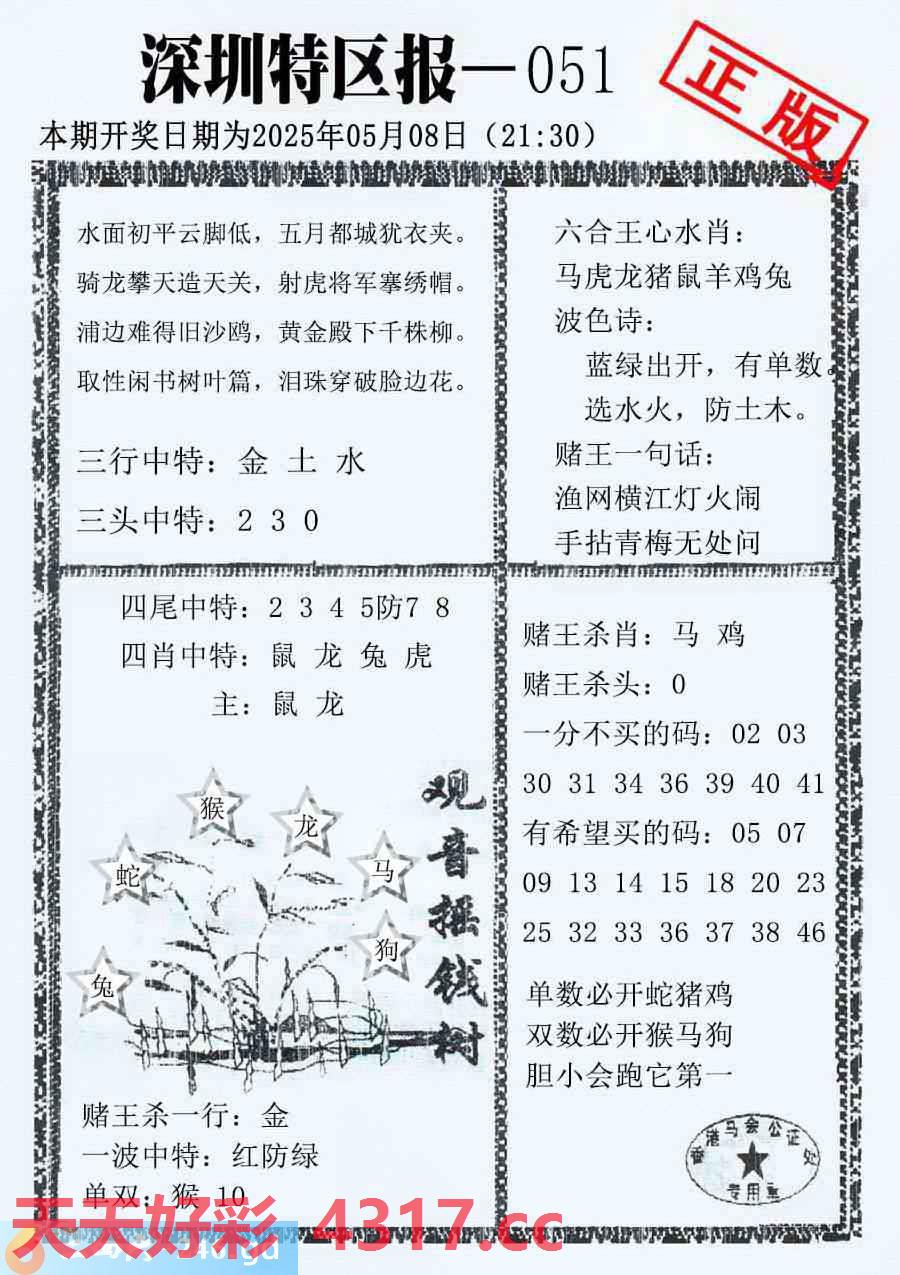 深圳特区报—051
正版
本期开奖日期为2025年05月08日（21:30）
水面初平云脚低，五月都城犹衣夹。
骑龙攀天造天关，射虎将军塞绣帽。
浦边难得旧沙鸥，黄金殿下千株柳。
取性闲书树叶篇，泪珠穿破脸边花。
三行中特：金 土 水
三头中特：2 3 0
六合王心水肖：
马虎龙猪鼠羊鸡兔
波色诗：
蓝绿出开，有单数。
选水火，防土木。
赌王一句话：
渔网横江灯火闹
手拈青梅无处问
四尾中特：2 3 4 5防7 8
四肖中特：鼠 龙 兔 虎
主：鼠 龙
猴
龙
蛇
马
狗
兔
观音摇钱树
赌王杀一行：金
一波中特：红防绿
单双：猴 10
赌王杀肖：马 鸡
赌王杀头：0
一分不买的码：02 03
30 31 34 36 39 40 41
有希望买的码：05 07
09 13 14 15 18 20 23
25 32 33 36 37 38 46
单数必开蛇猪鸡
双数必开猴马狗
胆小会跑它第一
香港马会公证处
专用章
天天好彩 4317.cc